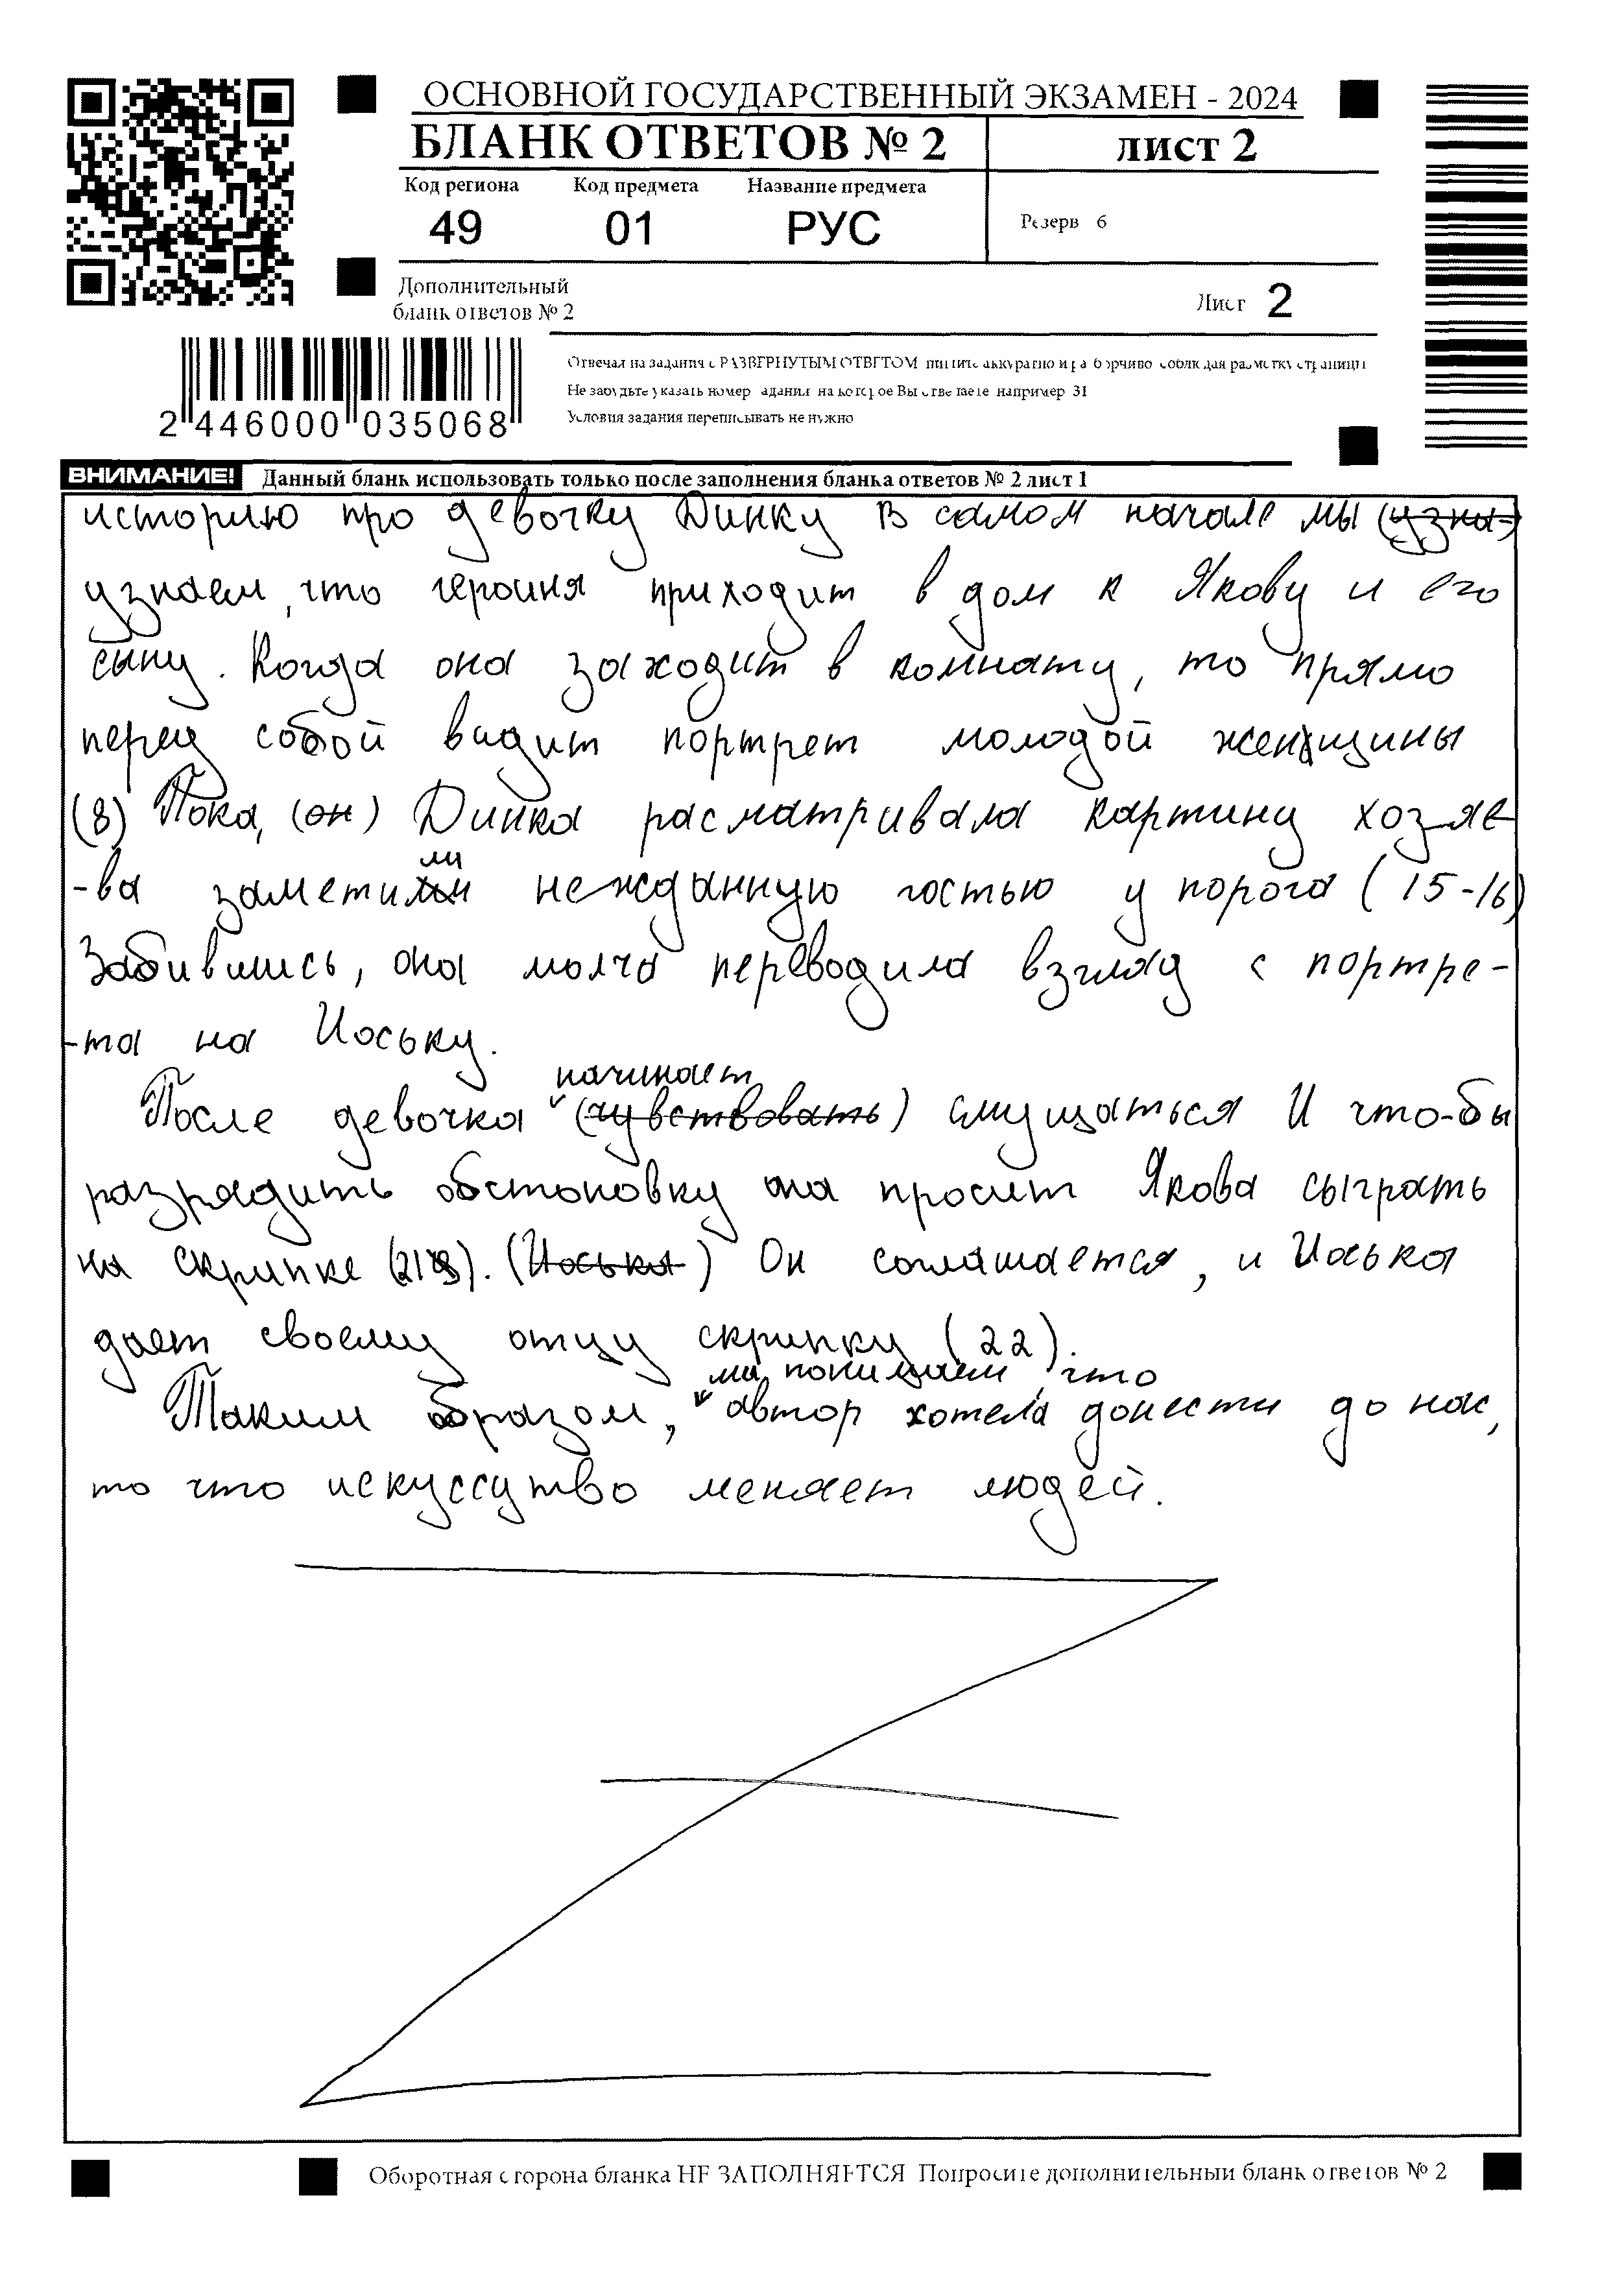 ОСНОВНОЙ ГОСУДАРСТВЕННЫЙ ЭКЗАМЕН - 2024
БЛАНК ОТВЕТОВ № 2 лист 2
Код региона Код предмета Название предмета
49 01 РУС
Резерв 6
Дополнительный
бланк ответов № 2
Лист 2
Отвечая на задания с РАЗВЕРНУТЫМ ОТВЕТОМ пишите аккуратно и разборчиво соблюдая разметку страницы
Не забудьте указать номер задания на которое Вы отвечаете например 31
Условия задания переписывать не нужно
2 446000 035068
ВНИМАНИЕ! Данный бланк использовать только после заполнения бланка ответов № 2 лист 1
историю про девочку Динку В самом начале мы (узна-)
узнаем, что героиня приходит в дом к Якову и его
сыну. Когда она заходит в комнату, то прямо
перед собой видит портрет молодой женщины
(8) Пока, (он) Динка расматривала картину хозяе-
-ва заметили нежданную гостью у порога (15-16)
Забившись, она молча переводила взгляд с портре-
-та на Иоську.
После девочка начинает (чувствовать) смущаться И что-бы
разрядить обстановку она просит Якова сыграть
на скрипке (21). (Иоська) Он соглашается, и Иоська
дает своему отцу скрипку (22).
Таким образом, мы понимаем, что автор хотела донести до нас,
то что искуссутво меняет людей.
Оборотная сторона бланка НЕ ЗАПОЛНЯЕТСЯ Попросите дополнительный бланк ответов № 2